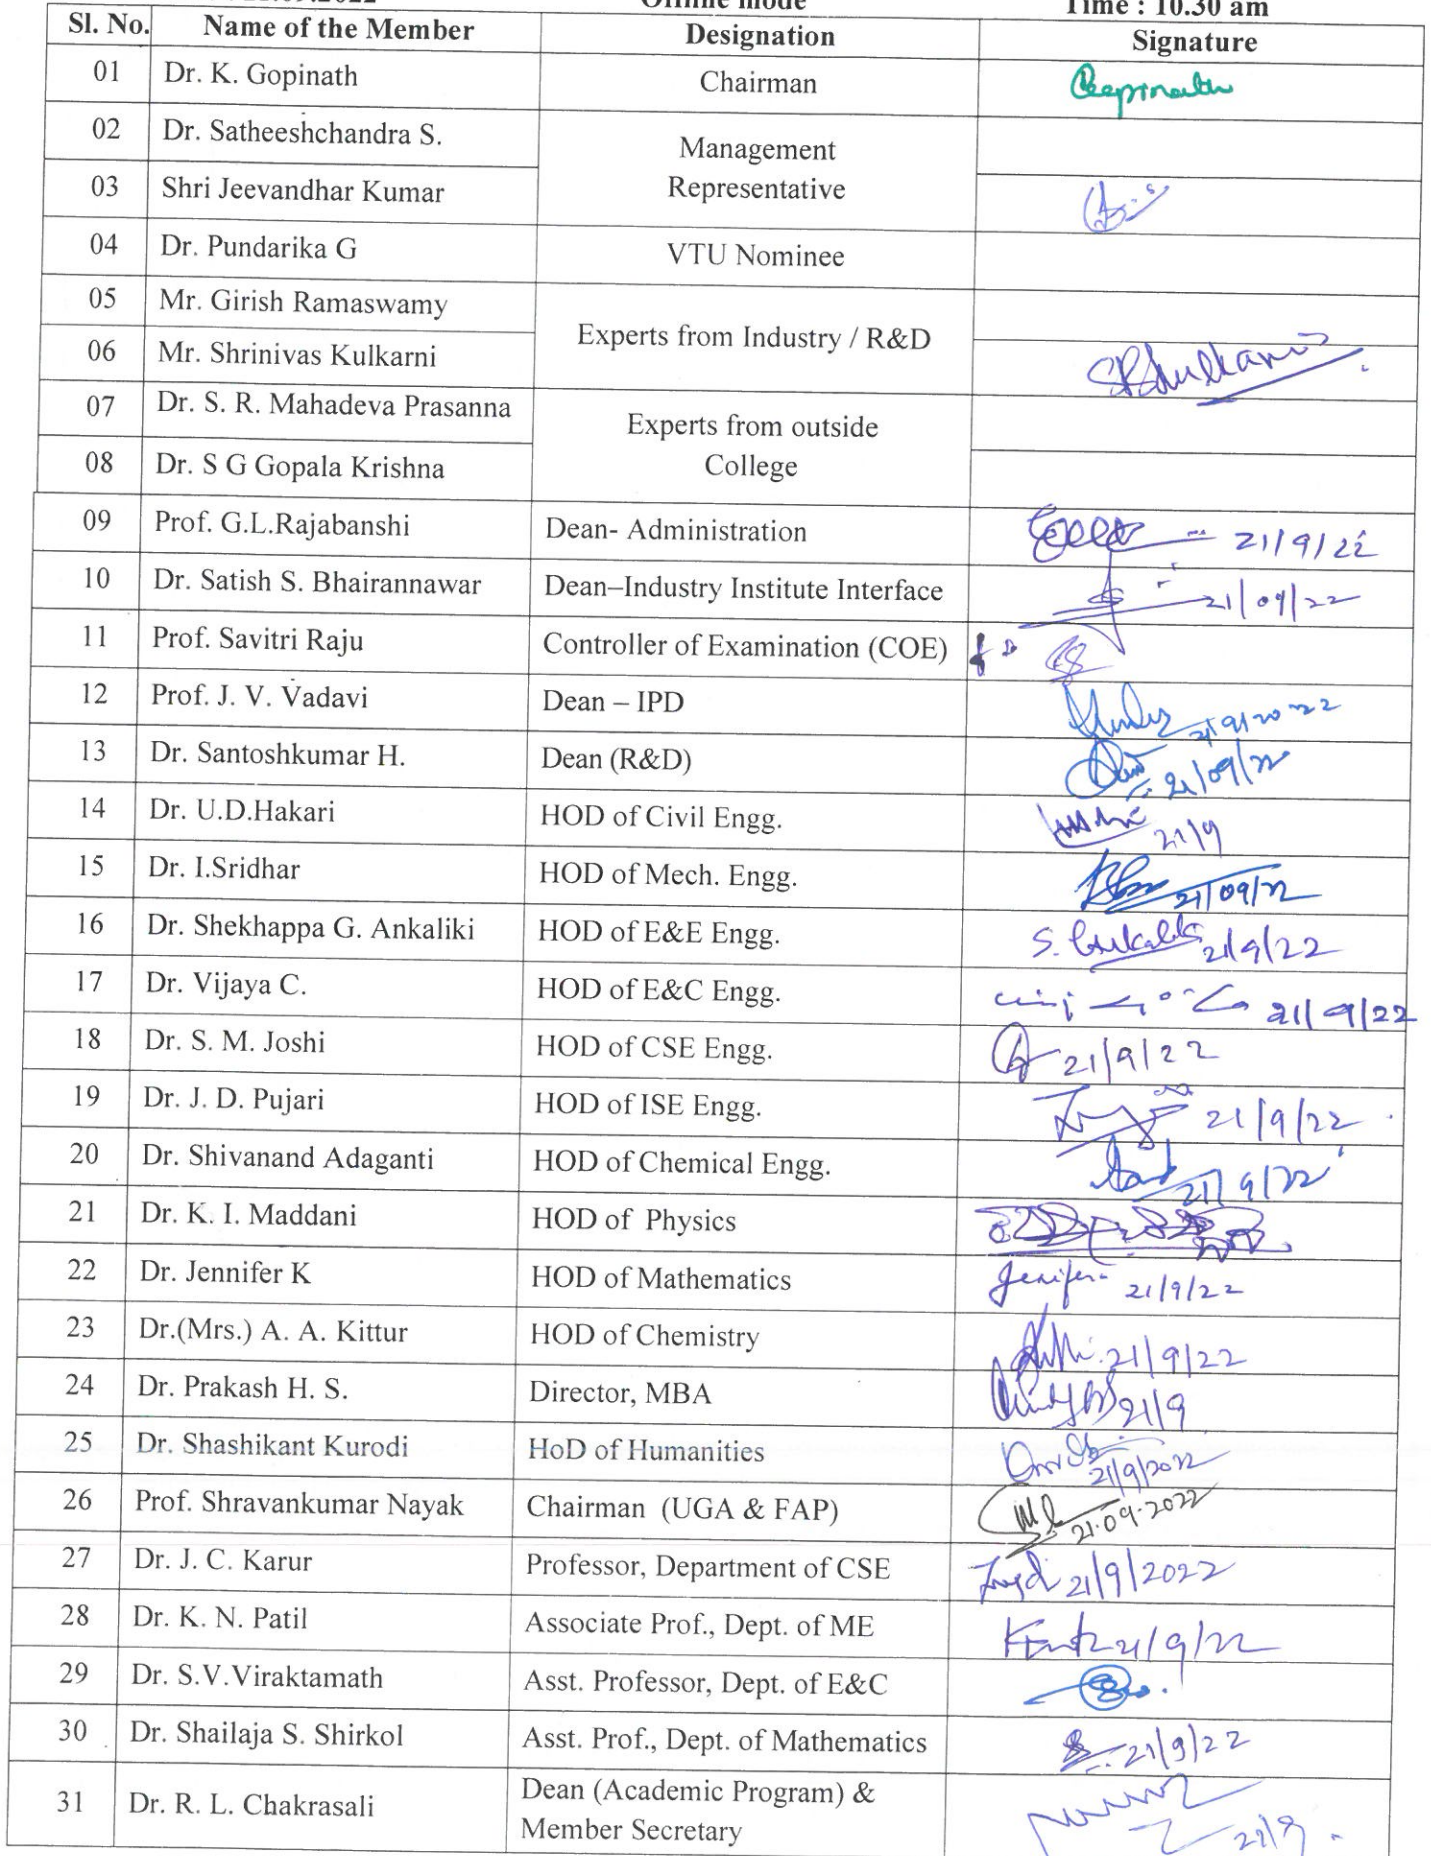 Time : 10.30 am
Sl. No. Name of the Member Designation Signature
01 Dr. K. Gopinath Chairman Gopinath
02 Dr. Satheeshchandra S. Management
03 Shri Jeevandhar Kumar Representative
04 Dr. Pundarika G VTU Nominee
05 Mr. Girish Ramaswamy Experts from Industry / R&D
06 Mr. Shrinivas Kulkarni
07 Dr. S. R. Mahadeva Prasanna Experts from outside
08 Dr. S G Gopala Krishna College
09 Prof. G.L.Rajabanshi Dean- Administration 21/9/22
10 Dr. Satish S. Bhairannawar Dean–Industry Institute Interface 21/09/22
11 Prof. Savitri Raju Controller of Examination (COE)
12 Prof. J. V. Vadavi Dean – IPD 21/9/2022
13 Dr. Santoshkumar H. Dean (R&D) 21/09/22
14 Dr. U.D.Hakari HOD of Civil Engg. 21/9
15 Dr. I.Sridhar HOD of Mech. Engg. 21/09/22
16 Dr. Shekhappa G. Ankaliki HOD of E&E Engg. 21/9/22
17 Dr. Vijaya C. HOD of E&C Engg. 21/9/22
18 Dr. S. M. Joshi HOD of CSE Engg. 21/9/22
19 Dr. J. D. Pujari HOD of ISE Engg. 21/9/22
20 Dr. Shivanand Adaganti HOD of Chemical Engg. 21/9/22
21 Dr. K. I. Maddani HOD of Physics
22 Dr. Jennifer K HOD of Mathematics 21/9/22
23 Dr.(Mrs.) A. A. Kittur HOD of Chemistry 21/9/22
24 Dr. Prakash H. S. Director, MBA 21/9
25 Dr. Shashikant Kurodi HoD of Humanities 21/9/2022
26 Prof. Shravankumar Nayak Chairman (UGA & FAP) 21.09.2022
27 Dr. J. C. Karur Professor, Department of CSE 21/9/2022
28 Dr. K. N. Patil Associate Prof., Dept. of ME 21/9/22
29 Dr. S.V.Viraktamath Asst. Professor, Dept. of E&C
30 Dr. Shailaja S. Shirkol Asst. Prof., Dept. of Mathematics 21/9/22
31 Dr. R. L. Chakrasali Dean (Academic Program) &
Member Secretary